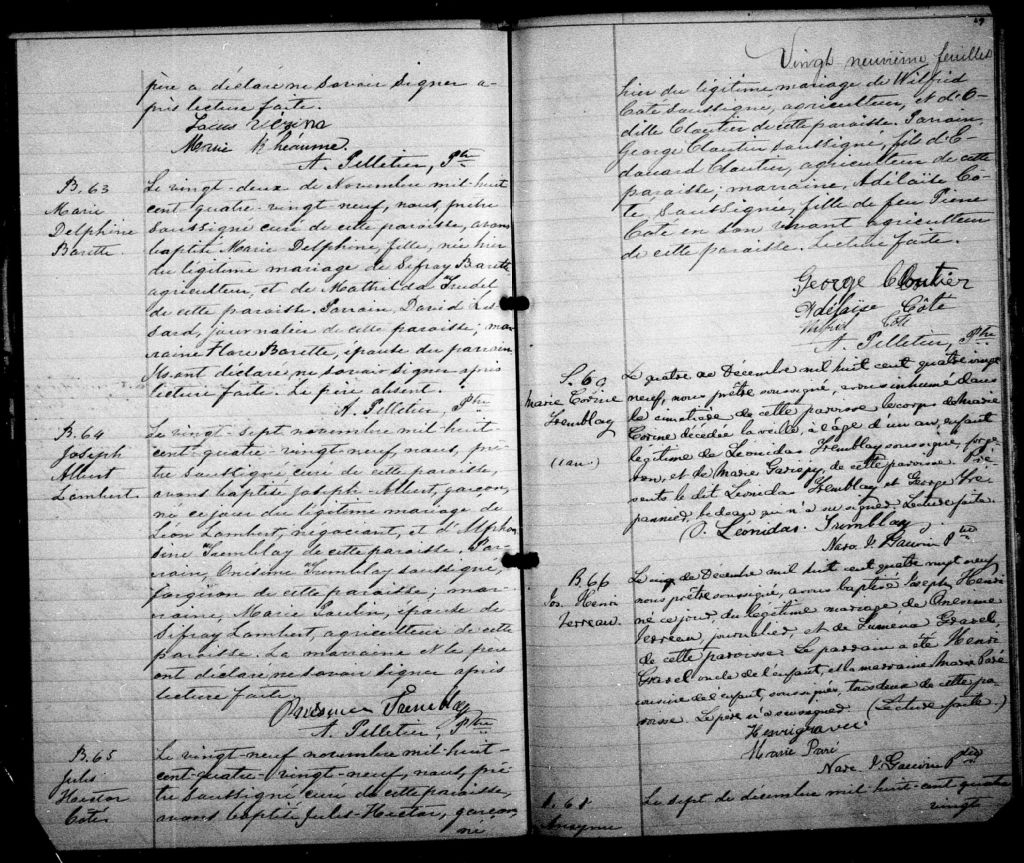 père a déclaré ne savoir signer a-
près lecture faite.
Louis Vézina
Marie Rhéaume
A. Pelletier, Ptre
B. 63
Marie
Delphine
Barette
Le vingt-deux de Novembre mil-huit
cent-quatre-vingt-neuf, nous, prêtre
soussigné curé de cette paroisse, avons
baptisé Marie Delphine, fille, née hier
du légitime mariage de Sifray Barette
agriculteur, et de Mathilda Trudel
de cette paroisse. Parrain, David Les-
sard, journalier de cette paroisse; mar-
raine Flore Barette, épouse du parrain
qui ont déclaré ne savoir signer après
lecture faite. Le père absent.
A. Pelletier, Ptre
B. 64
Joseph
Albert
Lambert.
Le vingt-sept novembre mil-huit
cent-quatre-vingt-neuf, nous, prê-
tre soussigné curé de cette paroisse,
avons baptisé Joseph-Albert, garçon,
né ce jour du légitime mariage de
Léon Lambert, négociant, et d'Alphon-
sine Tremblay de cette paroisse. Par-
rain, Onésime Tremblay soussigné,
forgeron de cette paroisse; mar-
raine, Marie Poulin, épouse de
Sifray Lambert, agriculteur de cette
paroisse. La marraine & le père
ont déclaré ne savoir signer après
lecture faite.
Onésime Tremblay
A. Pelletier, Ptre
B. 65
Jules
Hector
Coté
Le vingt-neuf novembre mil-huit-
cent-quatre-vingt-neuf, nous, prê-
tre soussigné curé de cette paroisse,
avons baptisé Jules-Hector, garçon,
né
29
Vingt neuvième feuillet
hier du légitime mariage de Wilfrid
Coté soussigné, agriculteur, et d'O-
dille Cloutier de cette paroisse. Parrain,
George Cloutier soussigné, fils d'É-
douard Cloutier, agriculteur de cette
paroisse; marraine, Adélaïse Co-
té, soussignée, fille de feu Pierre
Coté en son vivant agriculteur
de cette paroisse. Lecture faite.
George Cloutier
Adélaïse Côté
Wilfrid Coté
A. Pelletier, Ptre
S. 60
Marie Corine
Tremblay
(1 an.)
Le quatre de Décembre mil huit cent quatre vingt
neuf, nous prêtre soussigné, avons inhumé dans
le cimetière de cette paroisse le corps de Marie
Corine décédée la veille, à l'âge d'un an, enfant
légitime de Léonidas Tremblay soussigné, forge-
ron, et de Marie Gariépy, de cette paroisse. Pré-
sents le dit Léonidas Tremblay et George Tre-
panner, bedeau qui n'a su signer. Lecture faite.
Léonidas Tremblay
Naz. J. Gauvin Ptre
B 66
Jos. Henri
Verreau.
Le cinq de Décembre mil huit cent quatre vingt neuf,
nous prêtre soussigné, avons baptisé Joseph Henri
né ce jour, du légitime mariage de Onésime
Verreau, journalier, et de Luména Gravel,
de cette paroisse. Le parrain a été Henri
Gravel oncle de l'enfant, et la marraine Marie Paré
cousine de l'enfant, soussignés, tous deux de cette pa-
roisse. Le père n'a su signer. (Lecture faite.)
Henri gravel
Marie Paré
Naz. J. Gauvin Ptre
Anonyme
Le sept de décembre mil-huit-cent-quatre
vingts